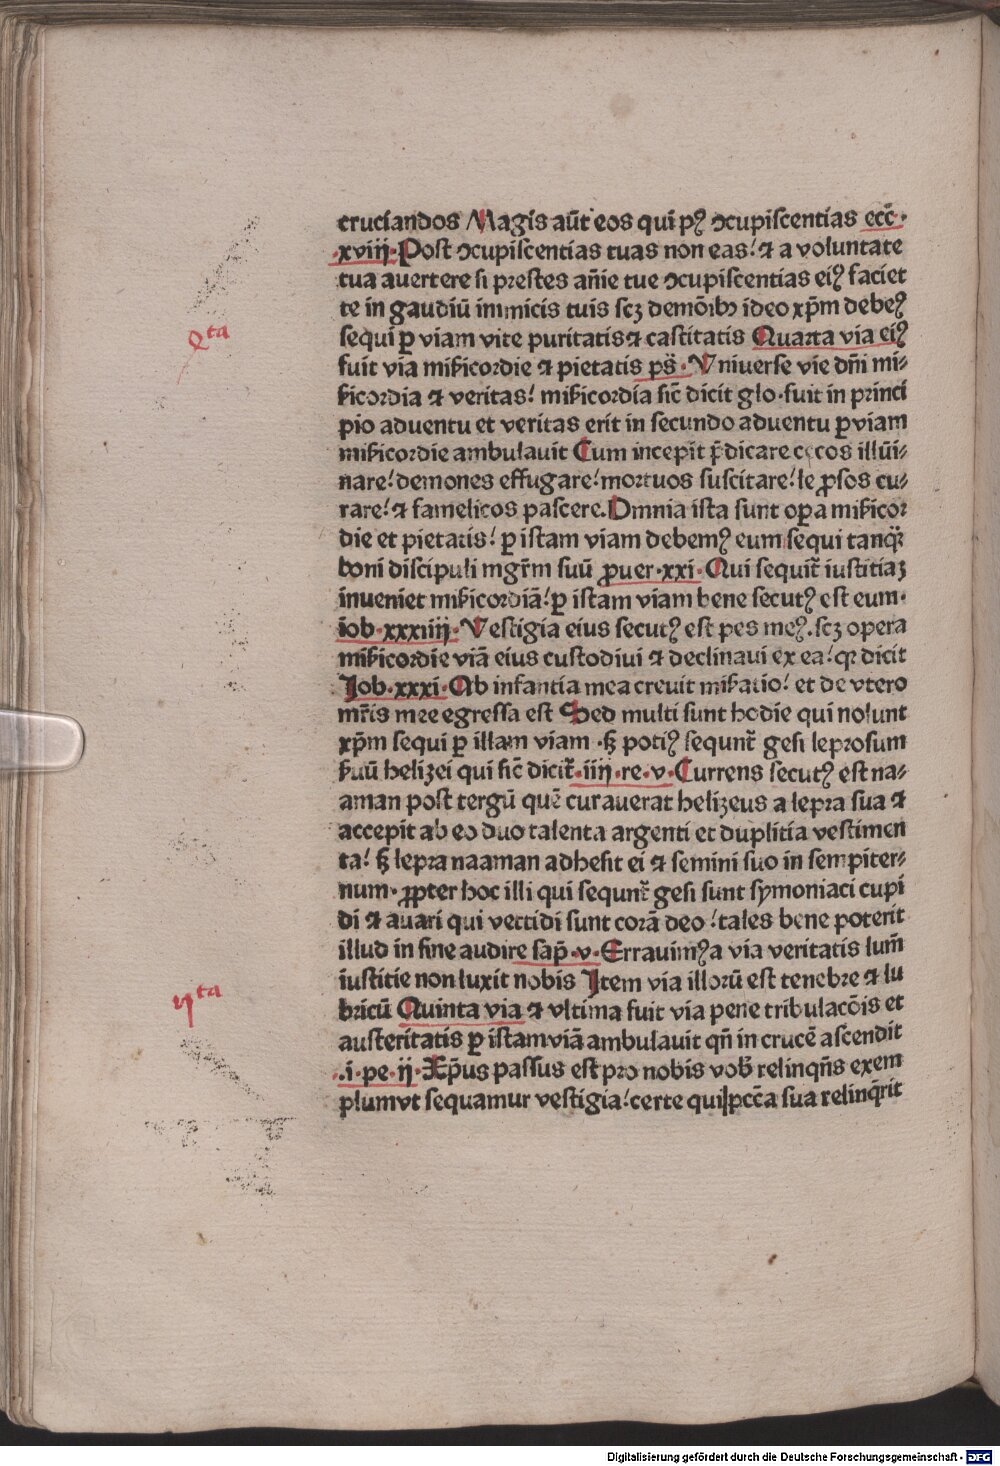 cruciandos Magis aūt eos qui pꝰ ↄcupiſcentias ecc̄·
·xviij·Poſt ↄcupiſcentias tuas non eas! ⁊ a voluntate
tua avertere ſi preſtes an̄ie tue ↄcupiſcentias eiꝰ faciet
te in gaudiū inimicis tuis ſcꝫ demōibꝫ ideo xp̄m debeꝰ
ſequi ꝑ viam vite puritatis ⁊ caſtitatis Quarta via eiꝰ
Qta
fuit via miẜicordie ⁊ pietatis ps̄·Vniverſe vie dn̄i mi⸗
ẜicordia ⁊ veritas! miẜicordia ſic̄ dicit glo·fuit in princi
pio aduentu et veritas erit in ſecundo aduentu ꝑ viam
miẜicordie ambulauit Cum incepit p̄dicare cecos illūi⸗
nare! demones effugare! mortuos ſuſcitare! leꝓſos cu⸗
rare! ⁊ famelicos paſcere. Omnia iſta ſunt oꝑa miẜicor
die et pietatis! ꝑ iſtam viam debemꝰ eum ſequi tanqꝫ̄
boni diſcipuli mgr̄m ſuū ꝓuer·xxi·Qui ſequit̄ iuſtitiaꝫ
inueniet miẜicordiā! ꝑ iſtam viam bene ſecutꝰ eſt eum·
iob·xxxiiij·Veſtigia eius ſecutꝰ eſt pes meꝰ. ſcꝫ opera
miẜicordie viā eius cuſtodivi ⁊ declinaui ex ea! qꝛ dicit
Job·xxxi·Ab infantia mea creuit miẜatio! et de vtero
mr̄is mee egreſſa eſt Sed multi ſunt hodie qui nolunt
xp̄m ſequi ꝑ illam viam ·ſꝫ potiꝰ ſequnt̄ geſi leproſum
ẜuū helizei qui ſic̄ dicit̄·iiij·re·v·Currens ſecutꝰ eſt na⸗
aman poſt tergū quē curauerat helizeus a lepra ſua ⁊
accepit ab eo duo talenta argenti et duplitia veſtimen
ta! ſꝫ lepra naaman adheſit ei ⁊ ſemini ſuo in ſempiter⸗
num·ꝓpter hoc illi qui ſequnt̄ geſi ſunt ſymoniaci cupi
di ⁊ auari qui vectidi ſunt corā deo! tales bene poterit
illud in fine audire ſap̄·v·Errauimꝰ a via veritatis lum̄
iuſtitie non luxit nobis Item via illorū eſt tenebre ⁊ lu
vta
bricū Quinta via ⁊ vltima fuit via pene tribulacōis et
auſteritatis ꝑ iſtam viā ambulauit qn̄ in crucē aſcendit
·i·pe·ij·Xp̄us paſſus eſt pro nobis vob̄ relinqn̄s exem
plum vt ſequamur veſtigia! certe qui pcc̄a sua relinqr̄it
Digitalisierung gefördert durch die Deutsche Forschungsgemeinschaft - DFG